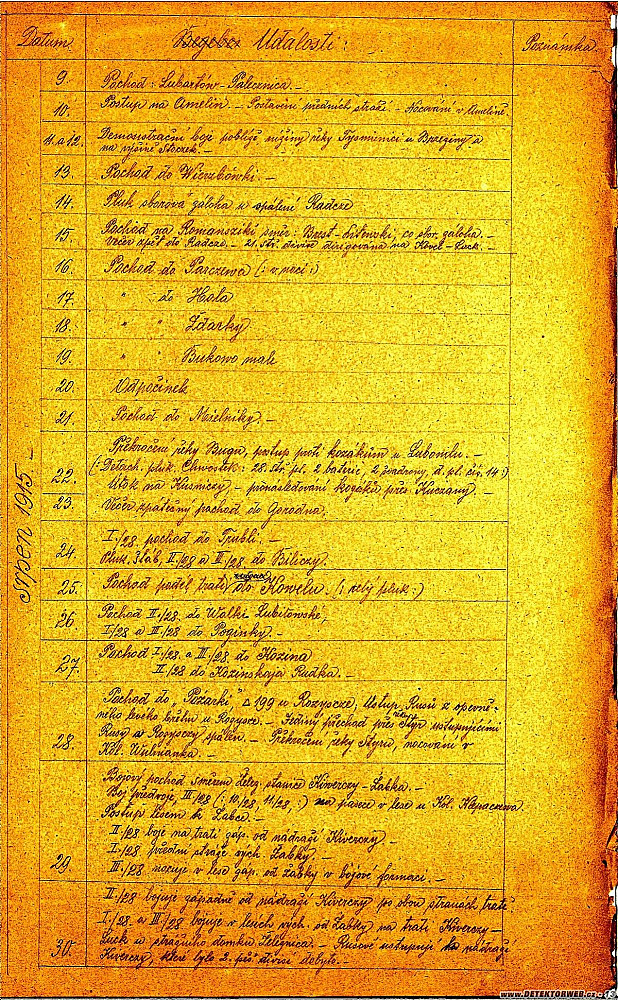 Datum. Události: Poznámka
Srpen 1915 –
9. Pochod: Lubartów – Palecznica. –
10. Postup na Amelin. – Postavení předních stráží. – Nocování v Amelině.
11. a 12. Demonstrační boj poblíže nížiny řeky Tysmienici u Brzeziny a
na výšině Stoczek. –
13. Pochod do Wierzbówki. –
14. Pluk sborová záloha u spálení Radcze
15. Pochod na Romansziki směr: Brest-Litewski, co sbor. záloha. –
Večer zpět do Radcze. – 21. stř. divise dirigována na Kovel – Luck. –
16. Pochod do Parczewa (: v noci :)
17. " do Hola
18. " " Zdarky
19. " " Bukowo male
20. Odpočinek
21. Pochod do Mielniky. –
Překročení řeky Bugu, postup proti kozákům u Lubomlu. –
22. (: Detach. pluk. Chwostek: 28. stř. pl. 2 baterie, 2 švadrony, d. pl. čís. 14 :)
Útok na Kusniczy, – pronásledování kozáků přes Kuczany. –
23. Večer zpáteční pochod do Gorodna.
I./28 pochod do Trubli. –
24. Pluk. štáb, II./28 a III./28 do Biliczy. –
25. Pochod podél trati do Kowelu. (: celý pluk :)
26. Pochod II./28. do Wolki Lubitowské,
I./28 a III./28 do Poginky. –
27. Pochod I./28. a III./28 do Kozina
II./28 do Kozinskaja Rudka. –
Pochod do „Pozarki" △ 199 u Rozyscze; Ústup Rusů z opevně-
ného levého břehu u Rozyscze. – Jediný přechod přes Styr ustupujícími
28. Rusy u Rozysczy spálen. – Překročení řeky Styru, nocování v
Kol. Wulnianka. –
Bojový pochod směrem želez. stanice Kiwerczy – Zabka. –
Boj předvoje, III/28 (: 10/28, 11/28, :) na pasece v lese u Kol. Klepaczewa.
Postup lesem k Zabce. –
II./28 boje na trati záp. od nádraží Kiwerczy. –
I./28. přední stráže vých. Zabky. –
29. III./28 nocuje v lese záp. od Zabky v bojové formaci. –
II./28 bojuje západně od nádraží Kiwerczy po obou stranách tratě
I./28. a III./28 bojuje v lesích vých. od Zabky na trati Kiwerczy –
Luck u strážního domku Zeleznica. – Rusové ustupují na nádraží
30. Kiwerczy, které bylo 2. pěš. divisí dobyto. –
www.DETEKTORWEB.cz